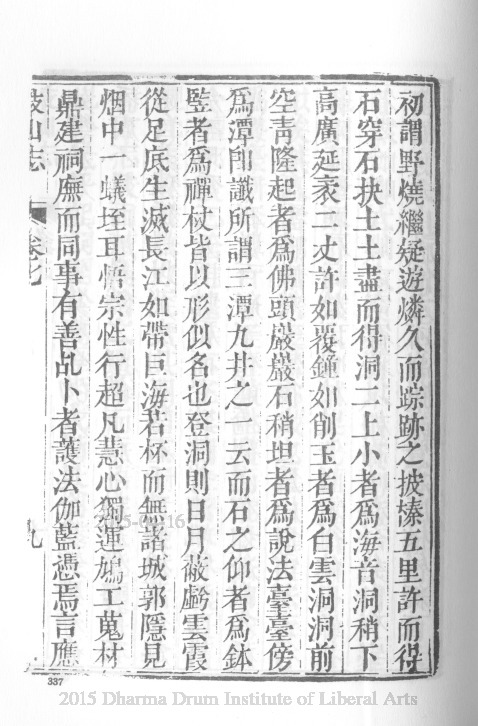 初謂野燒繼疑遊燐久而踪跡之披榛五里許而得
石穿石抉土土盡而得洞二上小者爲海音洞稍下
高廣延袤二丈許如覆鐘如削玉者爲白雲洞洞前
空靑隆起者爲佛頭巖巖石稍坦者爲說法臺臺傍
爲潭卽讖所謂三潭九井之一云而石之仰者爲鉢
竪者爲禪杖皆以形似名也登洞則日月蔽虧雲霞
從足底生滅長江如帶巨海若杯而無諸城郭隱見
烟中一蟻垤耳悟宗性行超凡慧心獨運鳩工蒐材
鼎建祠廡而同事有善乩卜者護法伽藍憑焉言應
鼓山志 卷七 九
337
2015 Dharma Drum Institute of Liberal Arts